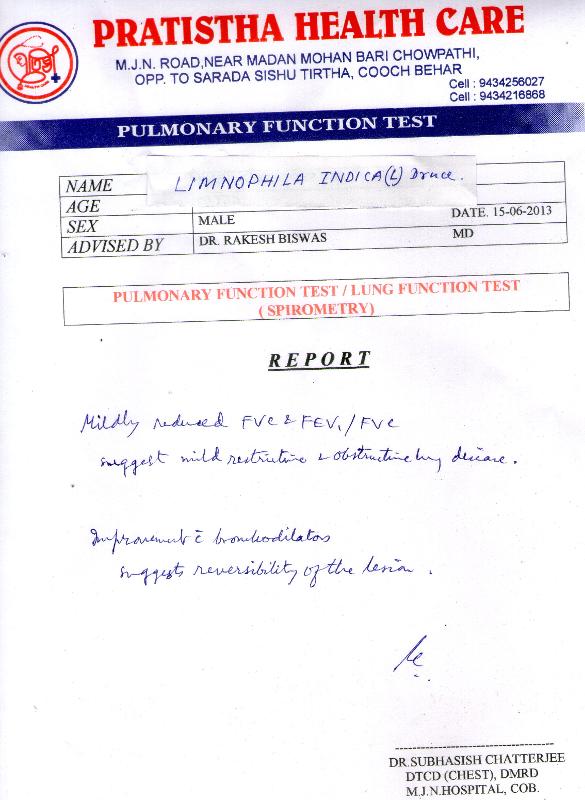 PRATISTHA HEALTH CARE
M.J.N. ROAD,NEAR MADAN MOHAN BARI CHOWPATHI,
OPP. TO SARADA SISHU TIRTHA, COOCH BEHAR
Cell : 9434256027
Cell : 9434216868
PULMONARY FUNCTION TEST
NAME LIMNOPHILA INDICA (L) Druce.
AGE
SEX MALE DATE. 15-06-2013
ADVISED BY DR. RAKESH BISWAS MD
PULMONARY FUNCTION TEST / LUNG FUNCTION TEST
( SPIROMETRY)
REPORT
Mildly reduced FVC & FEV1/FVC
suggest mild restrictive & obstructive lung disease.
Improvement c̄ bronchodilators
suggests reversibility of the lesion.
DR.SUBHASISH CHATTERJEE
DTCD (CHEST), DMRD
M.J.N.HOSPITAL, COB.